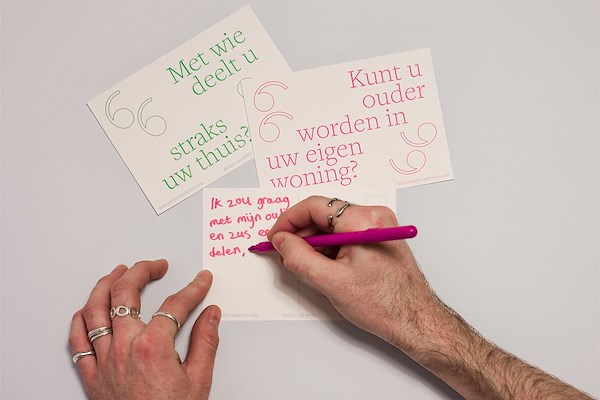 Met wie
deelt u
straks
uw thuis?
Kunt u
ouder
worden in
uw eigen
woning?
Ik zou graag
met mijn
en zus
delen,